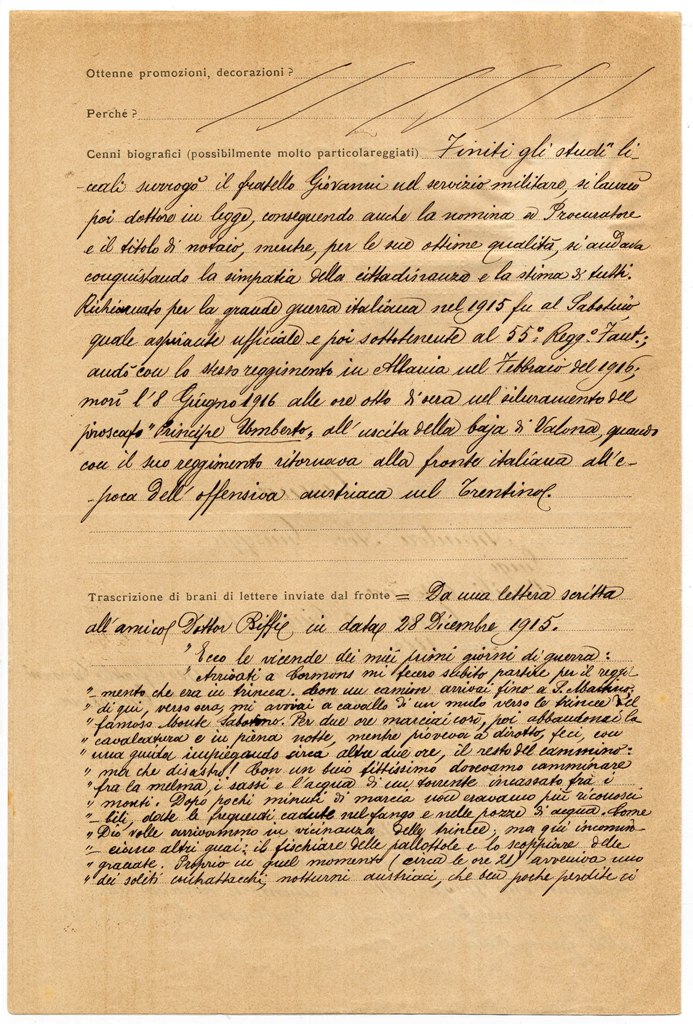 Ottenne promozioni, decorazioni?
Perchè?
Cenni biografici (possibilmente molto particolareggiati) Finiti gli studi li-
-ceali surrogò il fratello Giovanni nel servizio militare, si laureò
poi dottore in legge, conseguendo anche la nomina di Procuratore
e il titolo di notaio, mentre, per le sue ottime qualità, si andava
conquistando la simpatia della cittadinanza e la stima di tutti.
Richiamato per la grande guerra italiana nel 1915 fu al Sabotino
quale aspirante ufficiale e poi sottotenente al 55º Reggº Fant.;
andò con lo stesso reggimento in Albania nel Febbraio del 1916;
morì l'8 Giugno 1916 alle ore otto di sera nel siluramento del
piroscafo "Principe Umberto", all'uscita della baja di Valona, quando
con il suo reggimento ritornava alla fronte italiana all'e-
-poca dell'offensiva austriaca nel Trentino.
Trascrizione di brani di lettere inviate dal fronte = Da una lettera scritta
all'amico Dottor Biffi in data 28 Dicembre 1915.
" Ecco le vicende dei miei primi giorni di guerra:
" Arrivati a Cormons mi fecero subito partire per il reggi-
" mento che era in trincea. Con un camion arrivai fino a S. Martino;
" di qui, verso sera, mi avviai a cavallo di un mulo verso le trincee del
" famoso Monte Sabotino. Per due ore marciai così, poi abbandonai la
" cavalcatura e in piena notte, mentre pioveva a dirotto, feci, con
" una guida impiegando circa altre due ore, il resto del cammino:
" ma che disastro! Con un buio fittissimo dovevamo camminare
" fra la melma, i sassi e l'acqua di un torrente incassato fra i
" monti. Dopo pochi minuti di marcia non eravamo più riconosci-
" bili, date le frequenti cadute nel fango e nelle pozze di acqua. Come
" Dio volle arrivammo in vicinanza delle trincee, ma qui incomin-
" ciarono altri guai; il fischiare delle pallottole e lo scoppiare delle
" granate. Proprio in quel momento (circa le ore 21) avveniva uno
" dei soliti contrattacchi notturni austriaci, che ben poche perdite ci